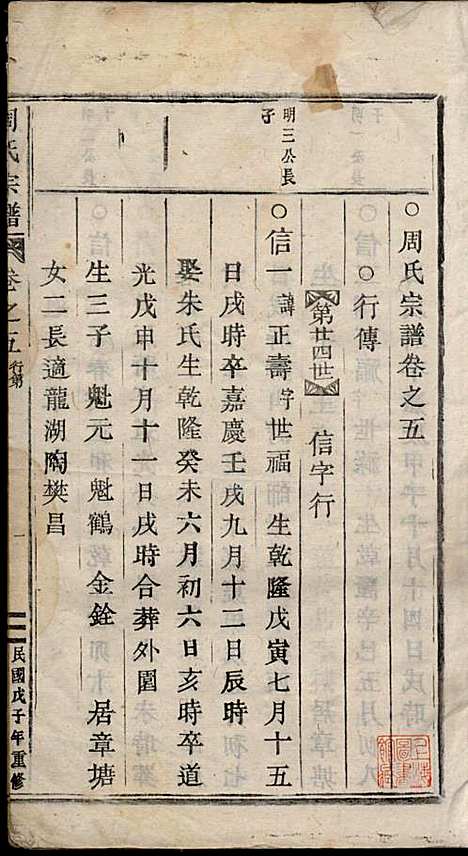 ○周氏宗譜卷之五
○行傳
第廿四世 信字行
明三公長子
○信一諱正壽字世福 生乾隆戊寅七月十五
日戌時卒嘉慶壬戌九月十二日辰時
娶朱氏生乾隆癸未六月初六日亥時卒道
光戊申十月十一日戌時合葬外園
生三子 魁元 魁鶴 金銓 居章塘
女二長適龍湖陶樊昌
周氏宗譜
卷之五 行第
一
民國戊子年重修